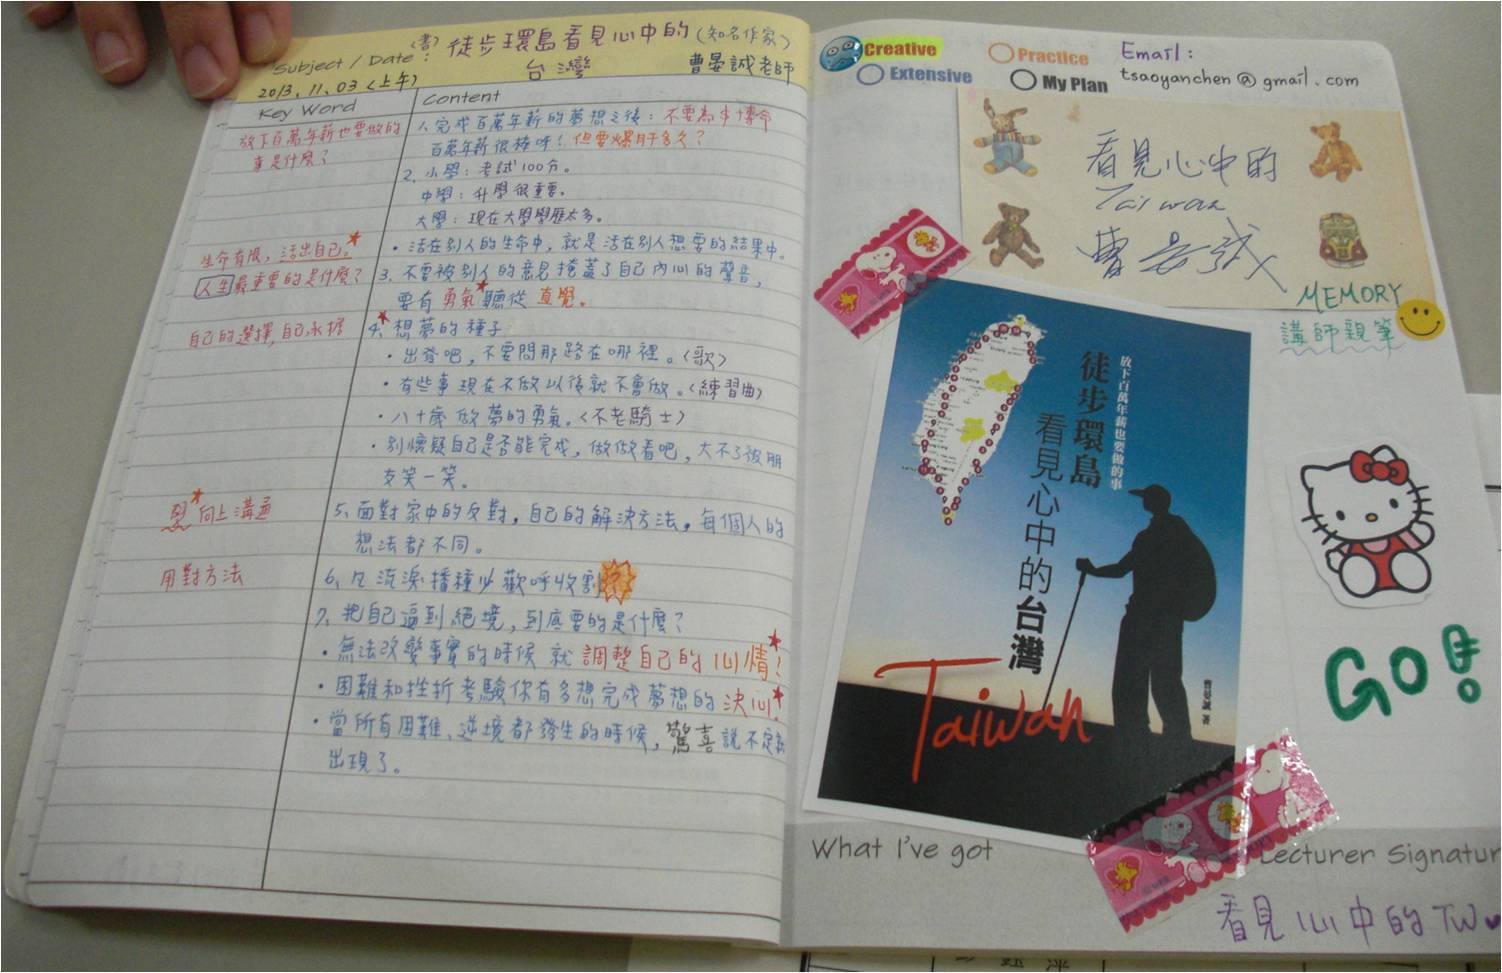 Subject / Date : (書) 徒步環島看見心中的 (知名作家)
台灣 曹晏誠老師
2013、11、03 (上午)
Key Word
Content
放下百萬年薪也要做的
事是什麼？
1、完成百萬年薪的夢想之後：不要為
百萬年薪很棒呀！但要爆肝多久？
2、小學：考試100分。
中學：升學很重要。
大學：現在大學學歷太多。
生命有限，活出自己。
•活在別人的生命中，就是活在別人想要的結果中。
人生最重要的是什麼？
3、不要被別人的意見掩蓋了自己內心的聲音，
要有勇氣聽從 直覺。
自己的選擇，自己承擔
4、想夢的種子
•出發吧，不要問那路在哪裡。〈歌〉
•有些事現在不做以後就不會做。〈練習曲〉
•八十歲做夢的勇氣。〈不老騎士〉
•別懷疑自己是否能完成，做做看吧，大不了被朋
友笑一笑。
向上溝通
5、面對家中的反對，自己的解決方法，每個人的
想法都不同。
用對方法
6、凡流淚播種必歡呼收割
7、把自己逼到絕境，到底要的是什麼？
•無法改變事實的時候就調整自己的心情！
•困難和挫折考驗你有多想完成夢想的決心！
•當所有困難、逆境都發生的時候，驚喜說不定就
出現了。
Creative
Practice
Extensive
My Plan
Email:
tsaoyanchen@gmail.com
看見心中的
Taiwan
曹晏誠
MEMORY
講師親筆
放下百萬年薪也要做的事
徒步環島
看見心中的台灣
曹晏誠 著
Taiwan
GO!
What I've got
Lecturer Signatur
看見心中的TW